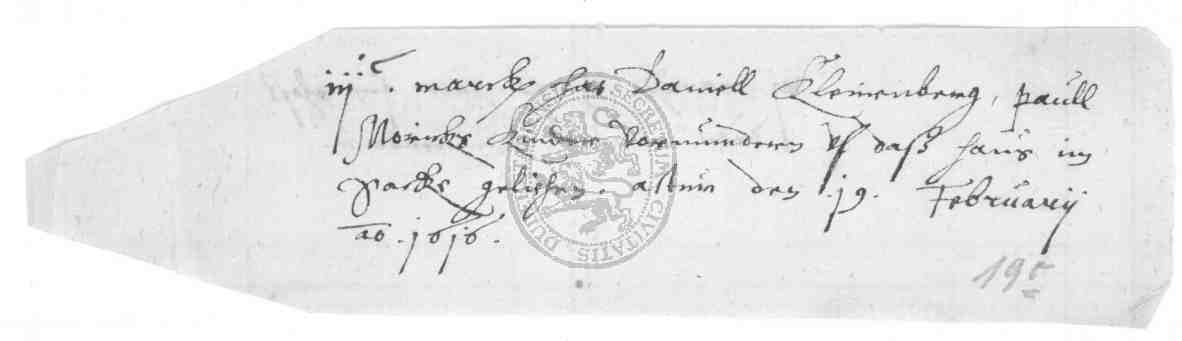 iijc. marck hat Daniell Kleinenberg, Paull
Moricks Kinder Vormundern vf daß haus im
Sacke gelichen. actum den .19. February
ao. 1616.
SECRETUM CIVITATIS
195